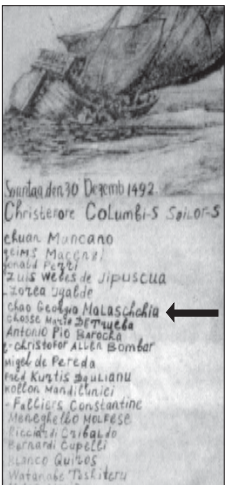 Sonntag den 30 Dezemb 1492.
Christerore Columbi-s Sailor-s
chuan Mancano
Luis Weles de Jipuscua
Lzorea Igalde
Chao Georgio Malaschchia
Chosse Maria DE Trueba
Antonio Pio Barocha
christofor Allen Bombar
Migel de Pereda
Fred Kurtis Boulianu
Kollon Mandilinici
- Falliers Constantine
Meneghelbo Molkese
Ricciardi Gribaldo
Bernardi Cupelli
Blanco Quiros
Watanabe Toshiteru